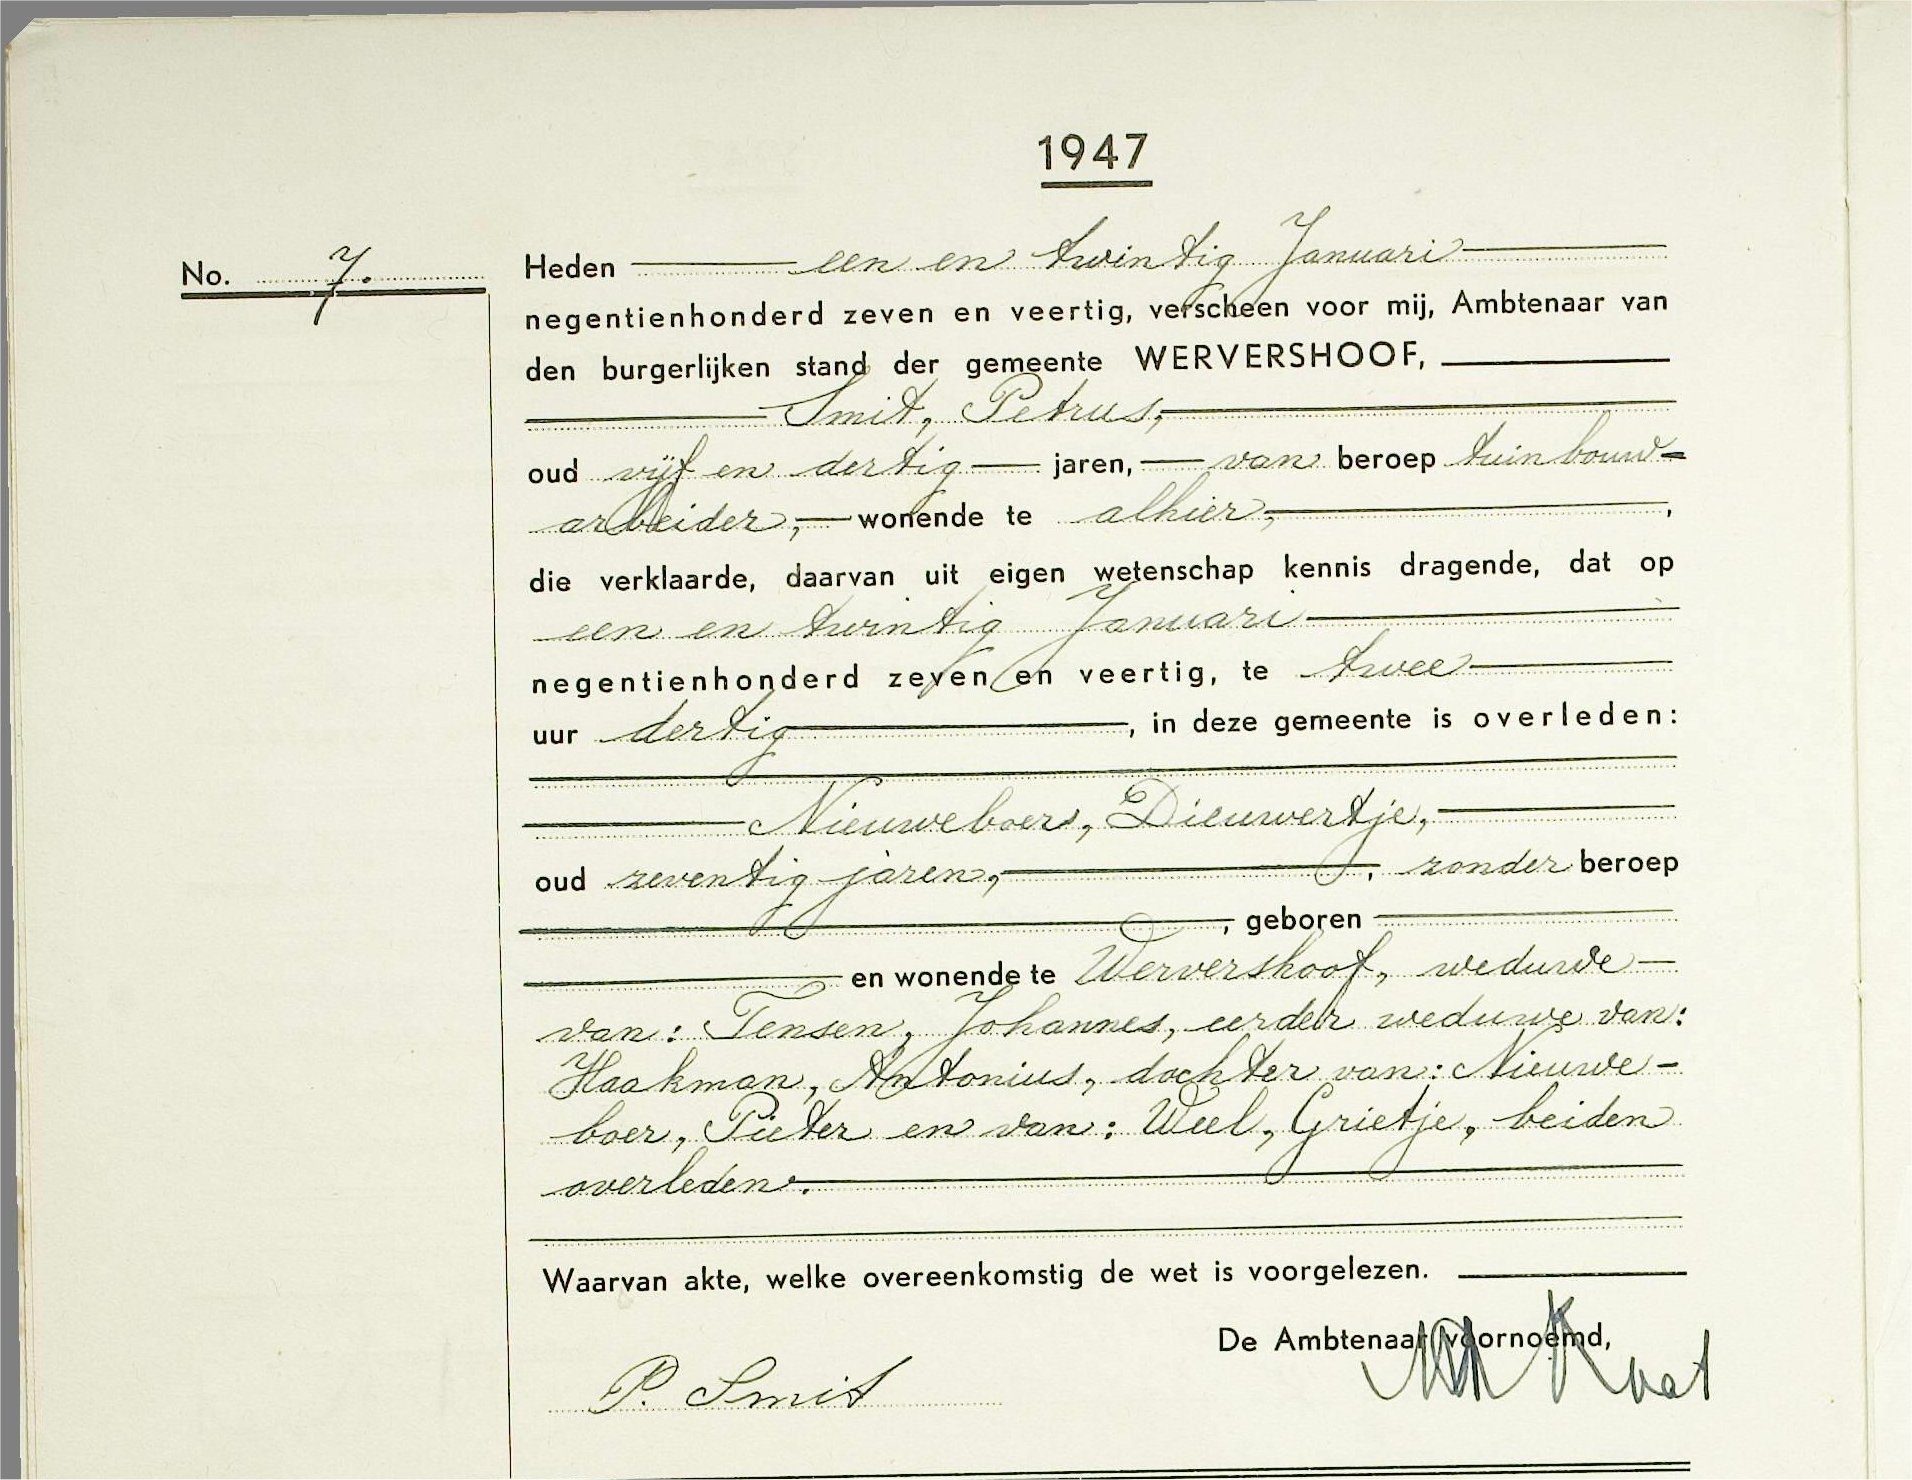 1947
No. 7.
Heden een en twintig Januari
negentienhonderd zeven en veertig, verscheen voor mij, Ambtenaar van
den burgerlijken stand der gemeente WERVERSHOOF,
Smit, Petrus,
oud vijf en dertig jaren, van beroep tuinbouw=
arbeider, wonende te alhier,
die verklaarde, daarvan uit eigen wetenschap kennis dragende, dat op
een en twintig Januari
negentienhonderd zeven en veertig, te twee
uur dertig, in deze gemeente is overleden:
Nieuweboer, Dieuwertje,
oud zeventig jaren, zonder beroep
, geboren
en wonende te Wervershoof, weduwe
van: Tensen, Johannes, eerder weduwe van:
Haakman, Antonius, dochter van: Nieuwe-
boer, Pieter en van: Weel, Grietje, beiden
overleden.
Waarvan akte, welke overeenkomstig de wet is voorgelezen.
De Ambtenaar voornoemd,
P. Smit